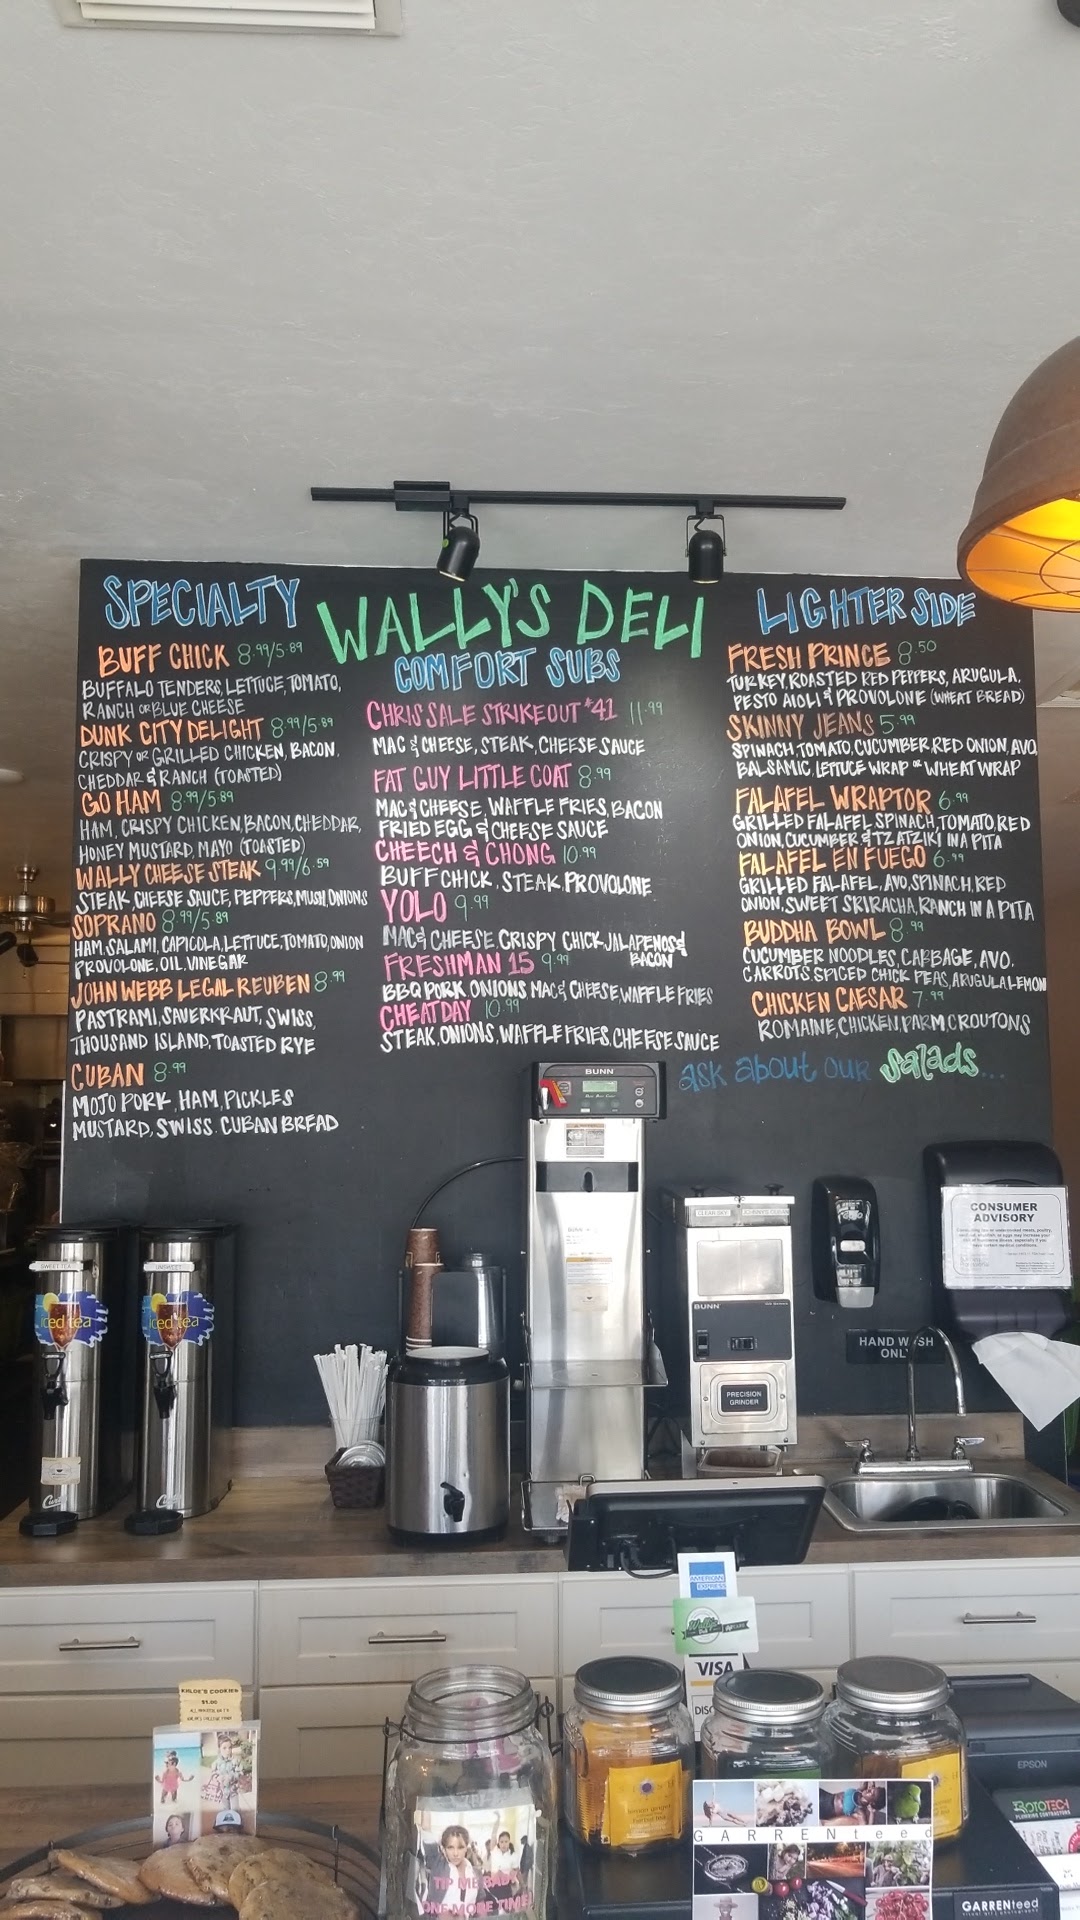 SPECIALTY
BUFF CHICK 8.99/5.89
BUFFALO TENDERS, LETTUCE, TOMATO,
RANCH OR BLUE CHEESE
DUNK CITY DELIGHT 8.99/5.89
CRISPY OR GRILLED CHICKEN, BACON,
CHEDDAR & RANCH (TOASTED)
GO HAM 8.99/5.89
HAM, CRISPY CHICKEN, BACON, CHEDDAR,
HONEY MUSTARD, MAYO (TOASTED)
WALLY CHEESE STEAK 9.99/6.59
STEAK, CHEESE SAUCE, PEPPERS, MUSH, ONIONS
SOPRANO 8.99/5.89
HAM, SALAMI, CAPICOLA, LETTUCE, TOMATO, ONION
PROVOLONE, OIL, VINEGAR
JOHN WEBB LEGAL REUBEN 8.99
PASTRAMI, SAUERKRAUT, SWISS,
THOUSAND ISLAND, TOASTED RYE
CUBAN 8.99
MOJO PORK, HAM, PICKLES
MUSTARD, SWISS, CUBAN BREAD
WALLY'S DELI
COMFORT SUBS
CHRIS SALE STRIKEOUT #41 11.99
MAC & CHEESE, STEAK, CHEESE SAUCE
FAT GUY LITTLE COAT 8.99
MAC & CHEESE, WAFFLE FRIES, BACON
FRIED EGG & CHEESE SAUCE
CHEECH & CHONG 10.99
BUFF CHICK, STEAK, PROVOLONE
YOLO 9.99
MAC & CHEESE, CRISPY CHICK, JALAPENOS &
BACON
FRESHMAN 15 9.99
BBQ PORK, ONIONS, MAC & CHEESE, WAFFLE FRIES
CHEAT DAY 10.99
STEAK, ONIONS, WAFFLE FRIES, CHEESE SAUCE
LIGHTER SIDE
FRESH PRINCE 8.50
TURKEY, ROASTED RED PEPPERS, ARUGULA,
PESTO AIOLI & PROVOLONE (WHEAT BREAD)
SKINNY JEANS 5.99
SPINACH, TOMATO, CUCUMBER, RED ONION, AVO,
BALSAMIC, LETTUCE WRAP OR WHEAT WRAP
FALAFEL WRAPTOR 6.99
GRILLED FALAFEL, SPINACH, TOMATO, RED
ONION, CUCUMBER & TZATZIKI IN A PITA
FALAFEL EN FUEGO 6.99
GRILLED FALAFEL, AVO, SPINACH, RED
ONION, SWEET SRIRACHA, RANCH IN A PITA
BUDDHA BOWL 8.99
CUCUMBER NOODLES, CABBAGE, AVO,
CARROTS, SPICED CHICK PEAS, ARUGULA, LEMON
CHICKEN CAESAR 7.99
ROMAINE, CHICKEN, PARM, CROUTONS
ask about our salads...
BUNN
SWEET TEA
iced tea
UNSWEET
iced tea
Curtis
BUNN
PRECISION
GRINDER
CONSUMER
ADVISORY
HAND WASH
ONLY
AMERICAN
EXPRESS
VISA
KHLOE'S COOKIES
$1.00
TIP ME BABY
ONE MORE TIME!
GARRENteed
EPSON
ROTOTECH
PLUMBING CONTRACTORS
GARRENteed